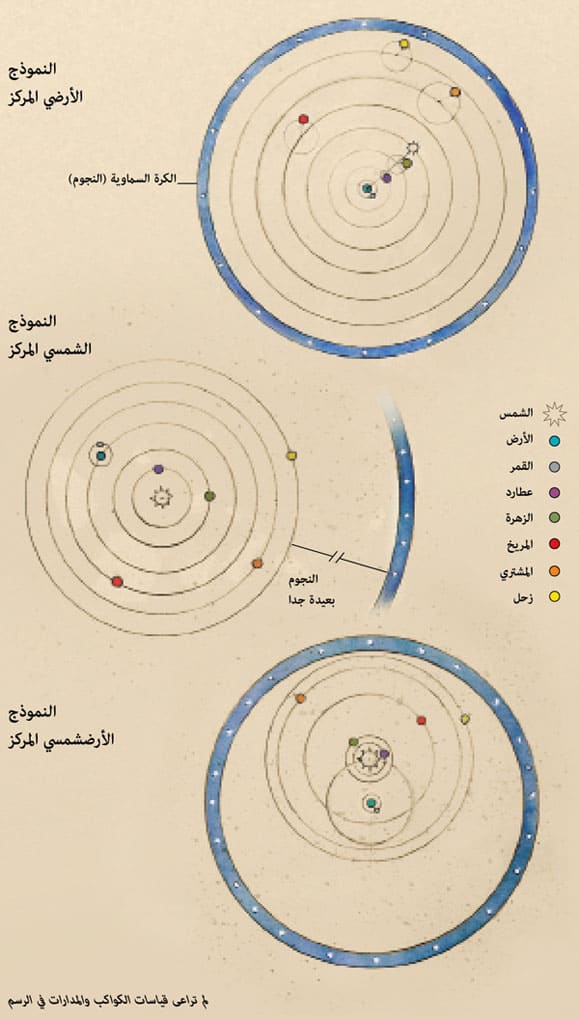 النموذج
الأرضي المركز
الكرة السماوية (النجوم)
النموذج
الشمسي المركز
الشمس
الأرض
القمر
عطارد
الزهرة
المريخ
المشتري
زحل
النجوم
بعيدة جدا
النموذج
الأرضشمسي المركز
لم تراعى قياسات الكواكب والمدارات في الرسم